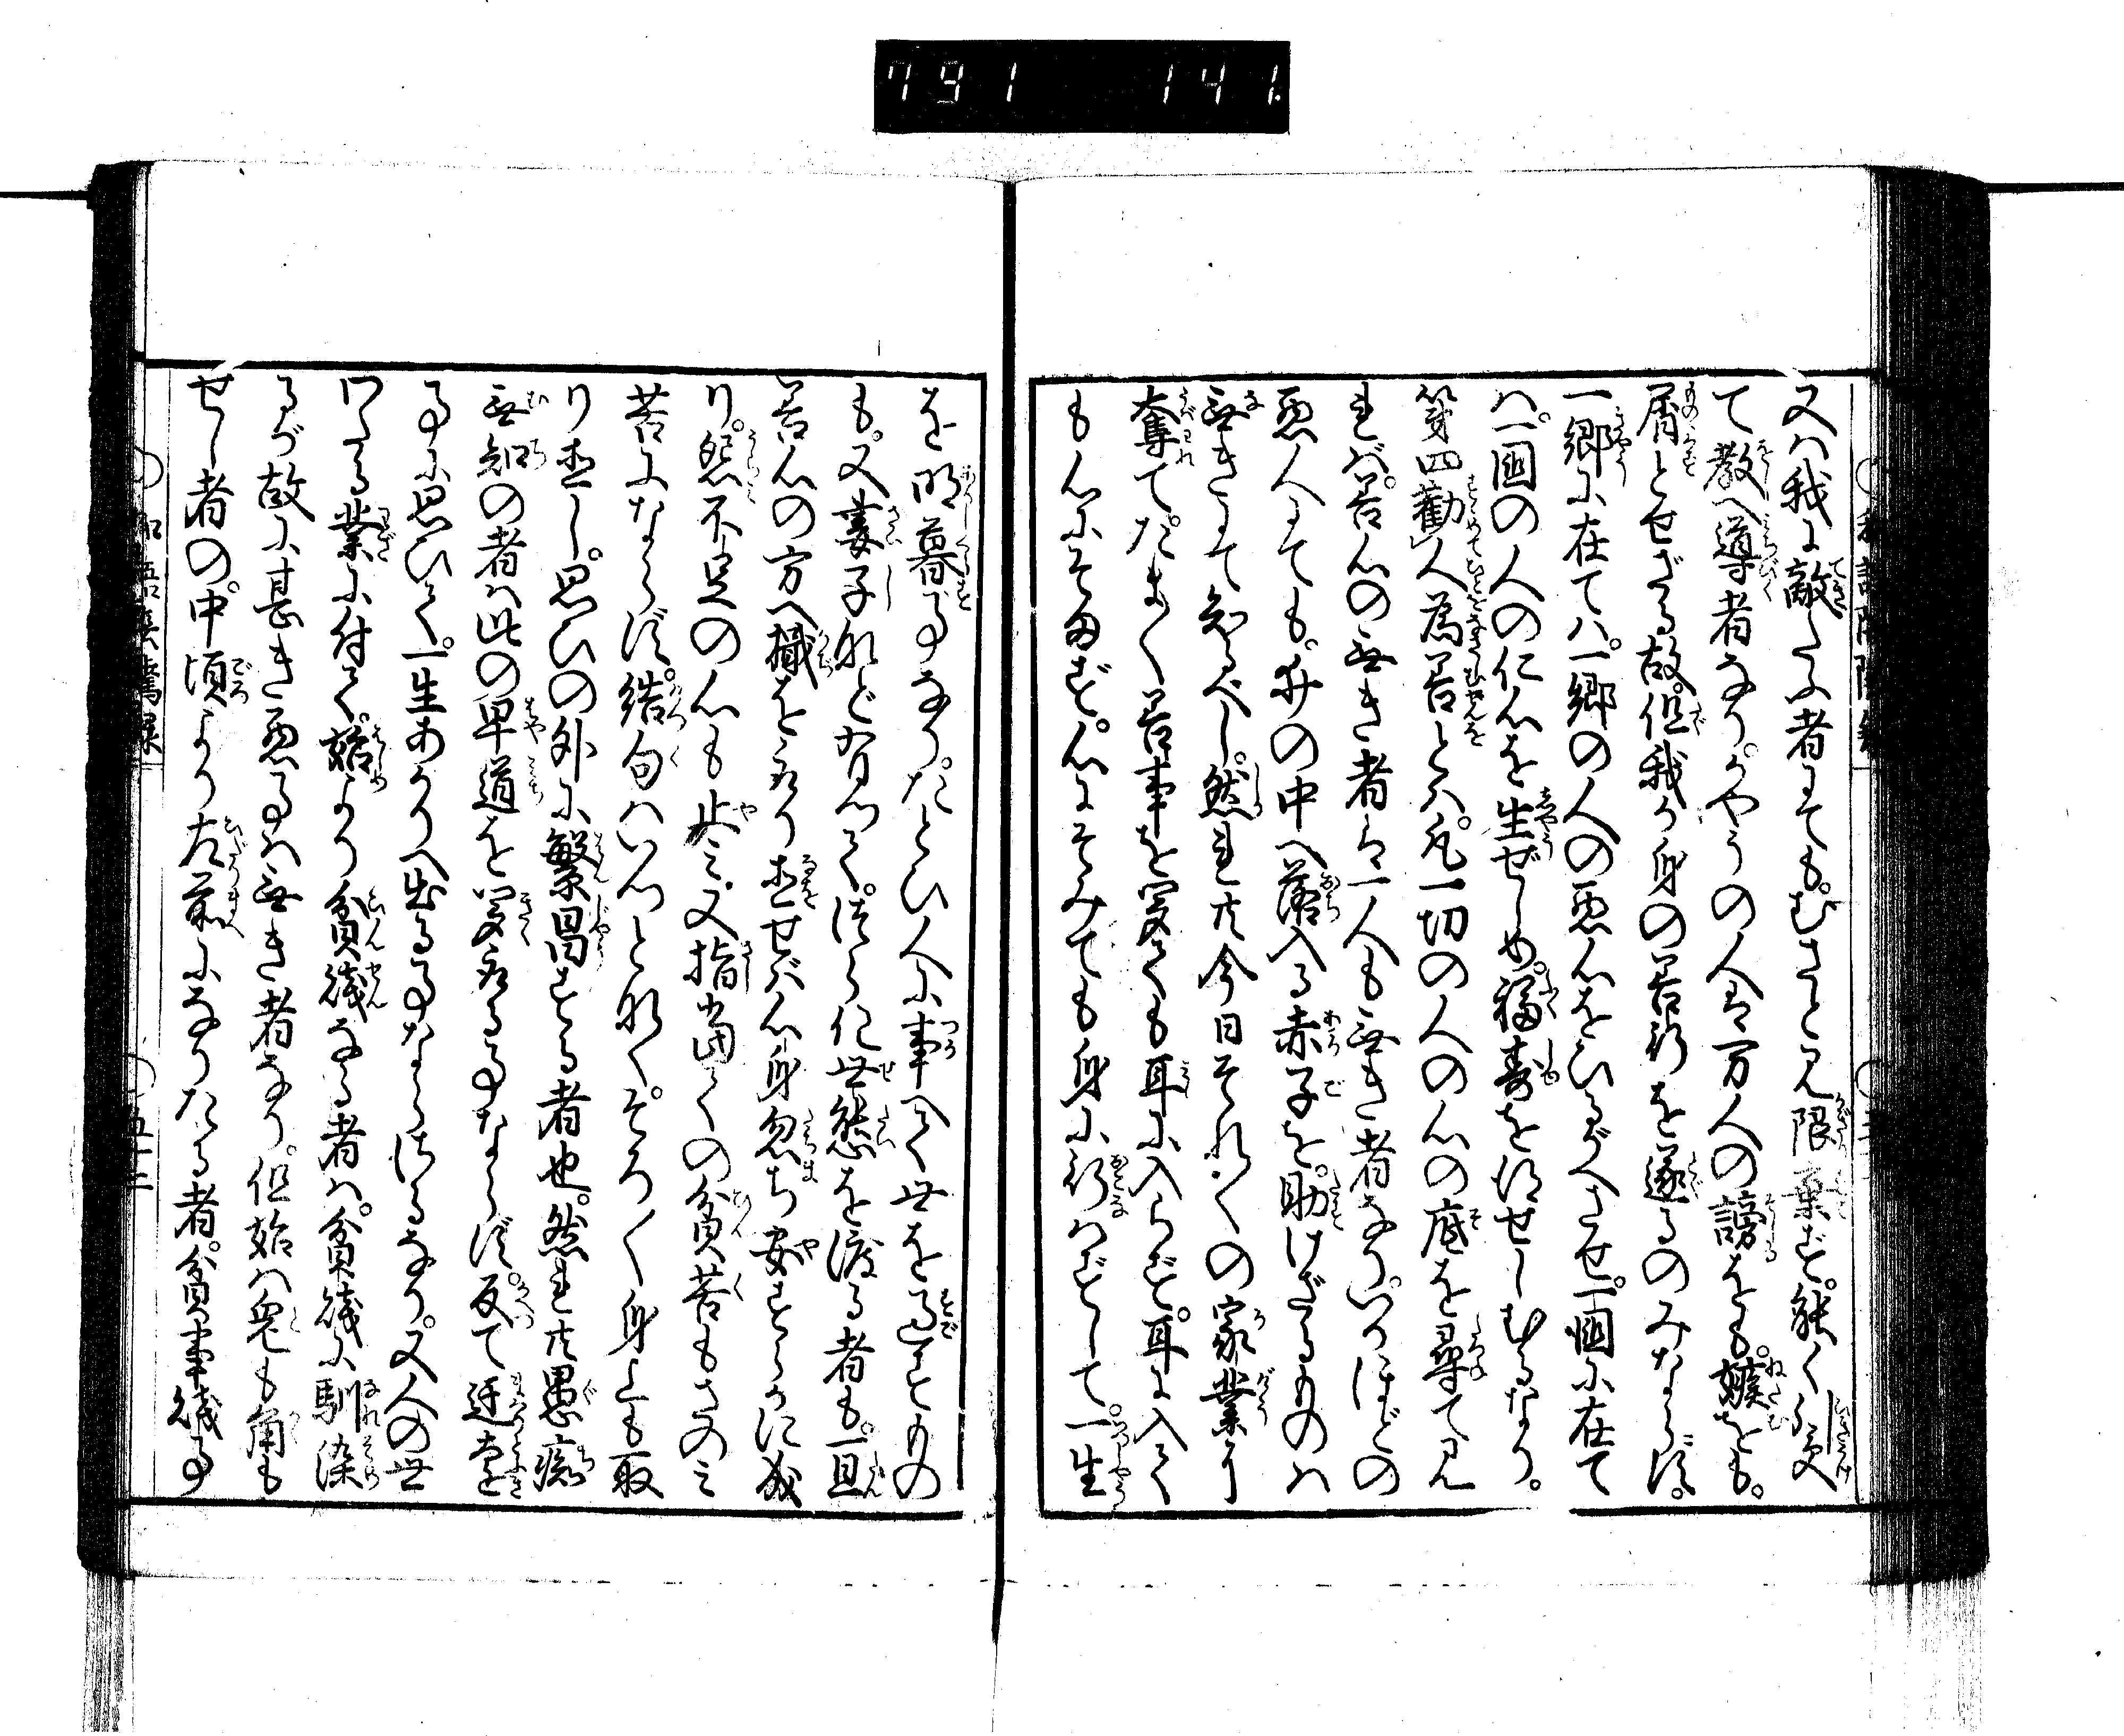 791 141.
又ハ我に敵たふ者にても。むさと見限棄ず。能く引受
て教へ導者なり。かやうの人ハ万人の謗をも。嫉をも。
屑とせざる故。但我が身の善行を遂るのみならず。
一郷に在てハ。一郷の人の悪心をひるがへさせ。一国に在て
ハ。一国の人の仁心を生ぜしめ。福寿を得せしむるなり。
第四勧人為善とハ。凡一切の人の心の底を尋て見
れバ。善心の無き者ハ一人も無き者なり。いかほどの
悪人にても。井の中へ落入る赤子を。助けざるものハ
無きにて知るべし。然れ共今日それ〳〵の家業に
奪れて。たま〳〵善事を聞ても耳に入らず。耳に入て
も心にそまず。心にそみても身に行ハずして。一生
を明暮す事なり。たとひ人に事へて世を過すもの
も。又妻子など有して。けらに世態を渡る者も。一旦
善心の方へ機を取り直せバ。心身忽ち安すらかに成
り。怨不足の心も止ミ。又指当ての貧苦もさのミ
苦にならず。結句ハいつとなく。そろ〳〵身上も取
り直し。思ひの外に繁昌する者也。然れ共愚痴
無知の者ハ此の早道を聞取る事ならず。反て迂遠
事に思ひて。一生あかりへ出る事ならざるなり。又人の世
にある業に付て。始より貧賤なる者ハ。貧賤に馴染
るが故に甚き悪事ハ無き者なり。但始ハ兎も角も
せし者の。中頃より左前になりたる者。貧事賤事
和語陰隲録
五十三